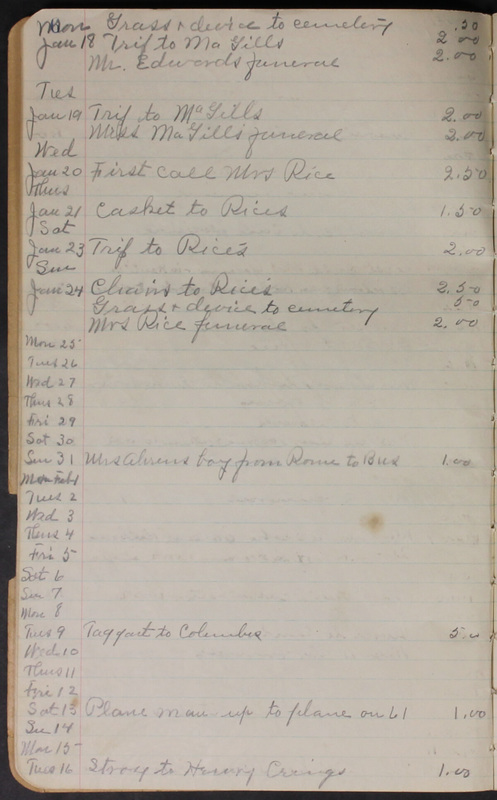 Mon Grass + device to cemetery .50
Jan 18 Trip to Ma Gills 2.00
Mr. Edwards funeral 2.00
Tues
Jan 19 Trip to McGills 2.00
Miss MaGills funeral 2.00
Wed
Jan 20 First call Mrs Rice 2.50
Thus
Jan 21 Casket to Rices 1.50
Sat
Jan 23 Trip to Rice's 2.00
Sun
Jan 24 Chairs to Rices 2.50
Grass + device to cemetery 50
Mrs Rice funeral 2.00
Mon 25
Tues 26
Wed 27
Thus 28
Fri 29
Sat 30
Sun 31 Mrs Ahrens boy from Rome to Bus 1.00
Mon Feb 1
Tues 2
Wed 3
Thus 4
Fri 5
Sat 6
Sun 7
Mon 8
Tues 9 Taggart to Columbus 5.
Wed 10
Thus 11
Fri 12
Sat 13 Plane man up to plane on 61 1.00
Sun 14
Mon 15
Tues 16 to Henry 1.00